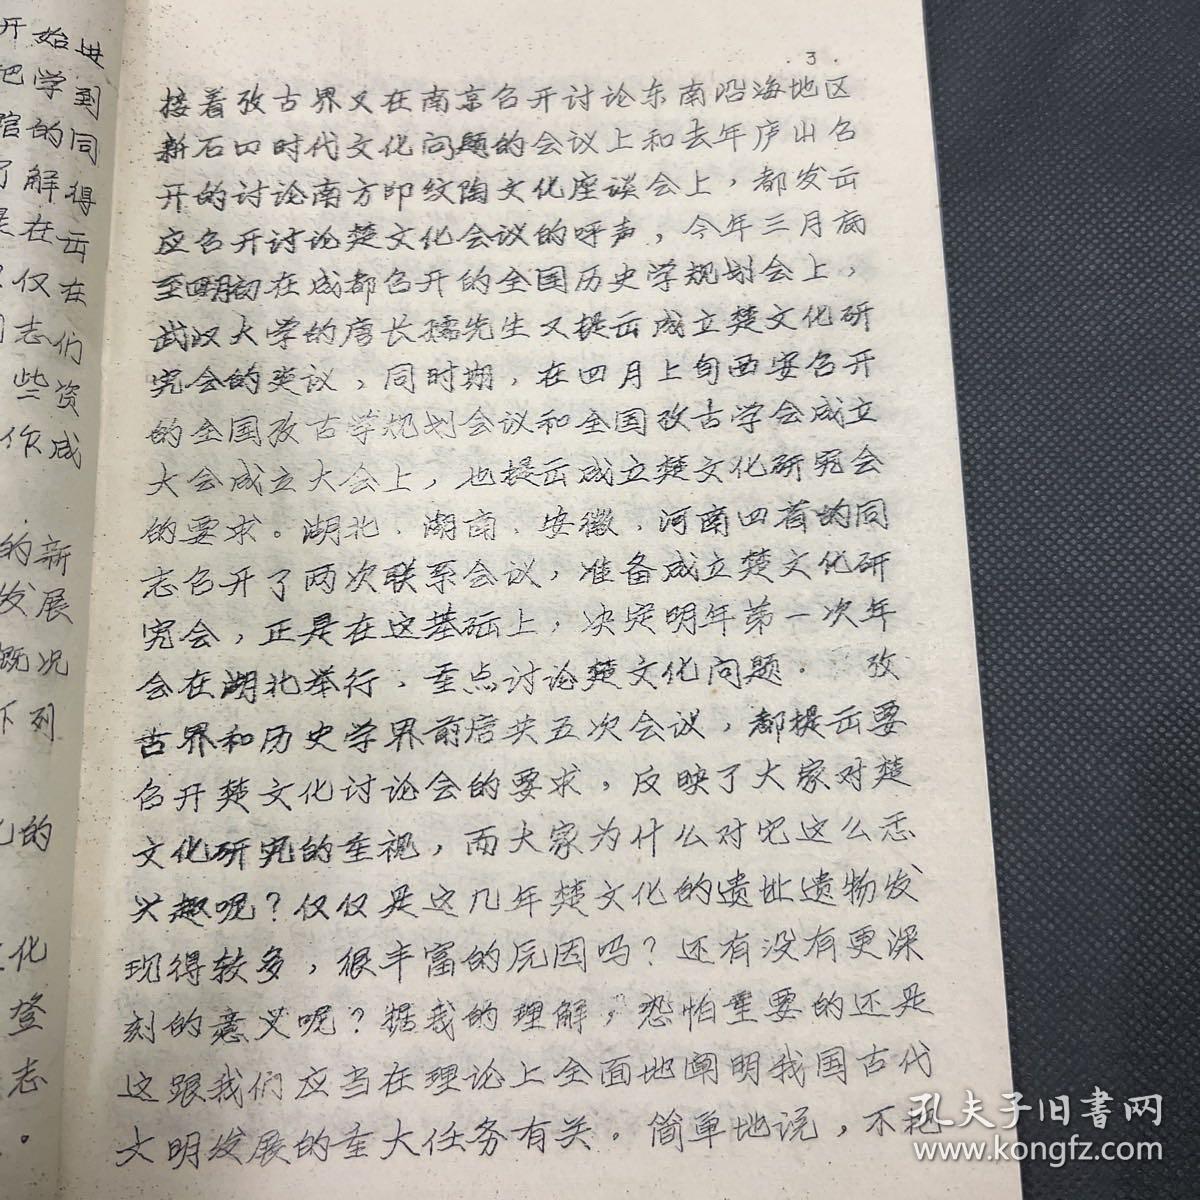 开始进
把学到
馆的同
了解得
是在出
仅在
同志们
些资
作成
的新
发展
概况
下列
化的
化
登
志
。
3.
接着考古界又在南京召开讨论东南沿海地区
新石口时代文化问题的会议上和去年庐山召
开的讨论南方印纹陶文化座谈会上，都发出
应召开讨论楚文化会议的呼声，今年三月
至四月初在成都召开的全国历史学规划会上，
武汉大学的唐长孺先生又提出成立楚文化研
究会的建议，同时期，在四月上旬西安召开
的全国考古学规划会议和全国考古学会成立
大会成立大会上，也提出成立楚文化研究会
的要求。湖北、湖南、安徽、河南四省的同
志召开了两次联系会议，准备成立楚文化研
究会，正是在这基础上，决定明年第一次年
会在湖北举行，重点讨论楚文化问题．考
古界和历史学界前后共五次会议，都提出要
召开楚文化讨论会的要求，反映了大家对楚
文化研究的重视，而大家为什么对它这么
兴趣呢？仅仅是这几年楚文化的遗址遗物发
现得较多，很丰富的原因吗？还有没有更深
刻的意义呢？据我的理解，恐怕重要的还是
这跟我们应当在理论上全面地阐明我国古代
文明发展的重大任务有关。简单地说，不
孔夫子旧书网
www.kongfz.com